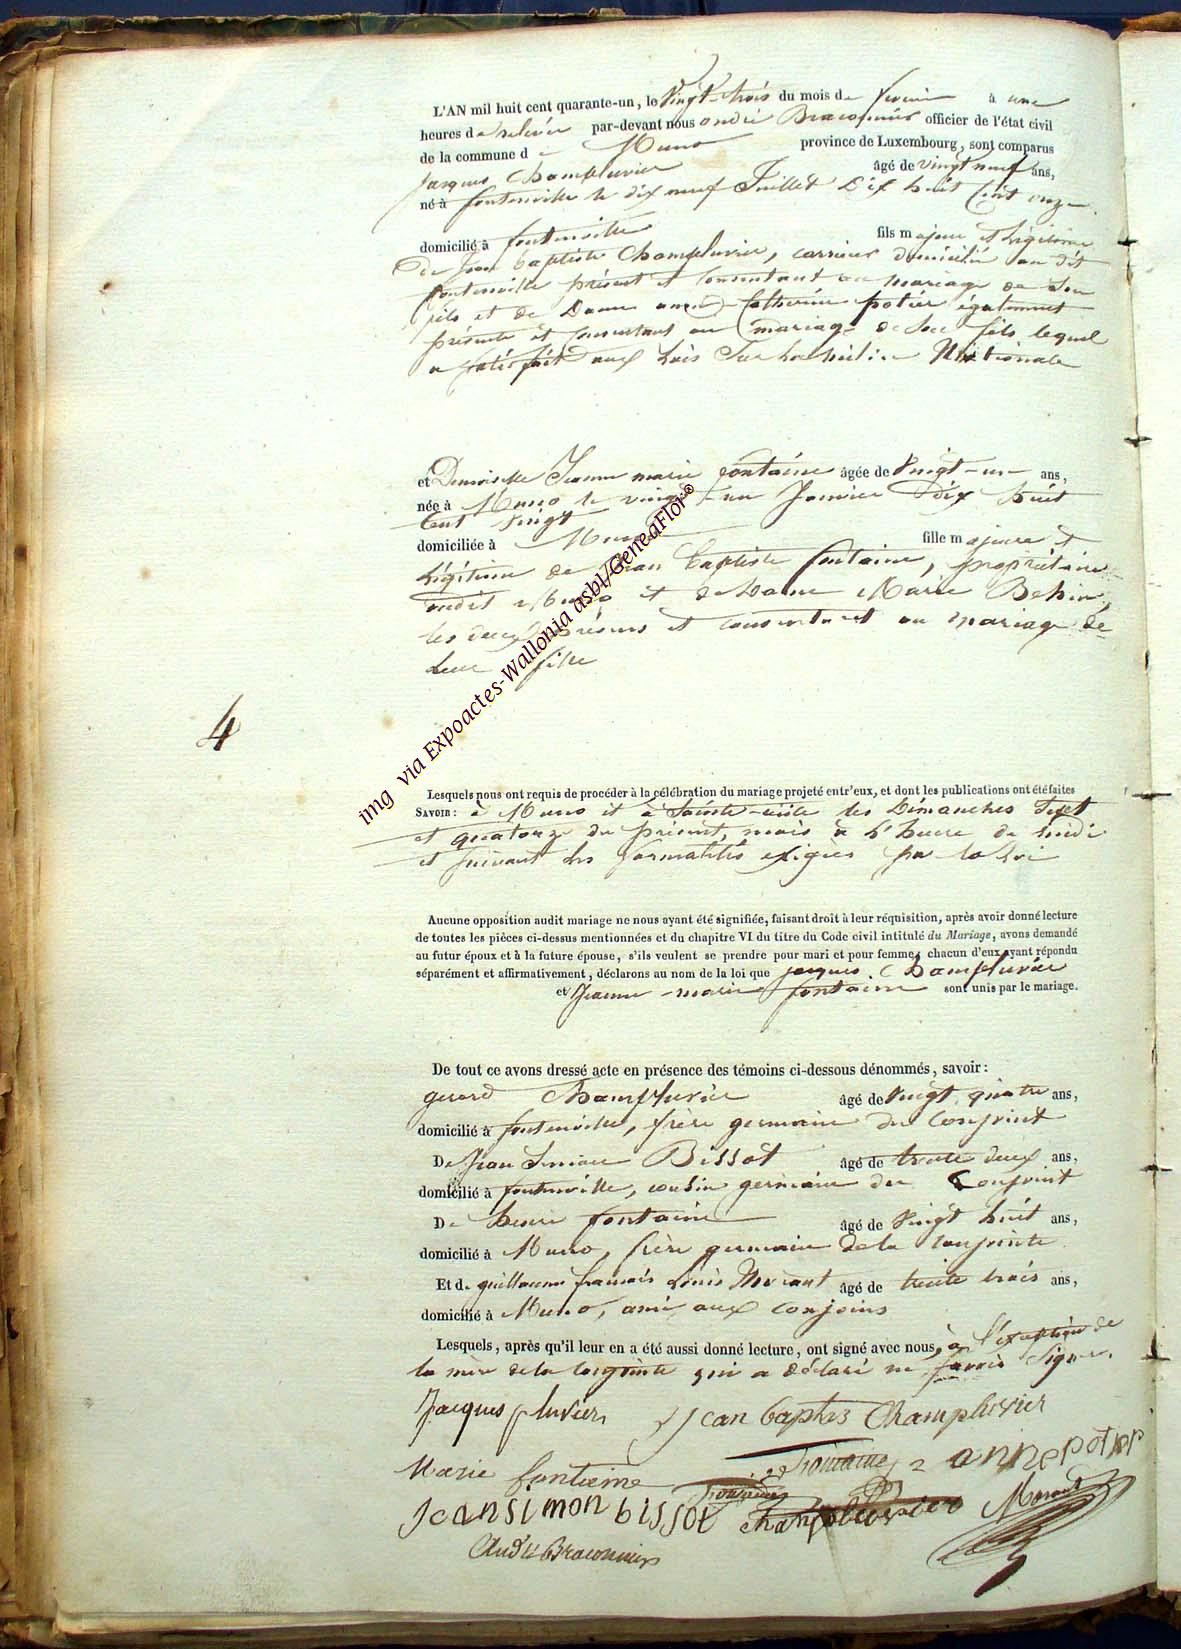 L'AN mil huit cent quarante-un, le Vingt-trois du mois de fevrier à une
heures de relevée par-devant nous andré Braconnier officier de l'état civil
de la commune d Muno province de Luxembourg, sont comparus
Jacques Champluvier âgé de vingt neuf ans,
né à fontenoille le dix neuf Juillet Dix huit Cent onze
domicilié à fontenoille fils majeur et Légitime
de Jean baptiste Champluvier, carrier domicilié au dit
fontenoille présent et Consentant au mariage de son
fils et de Dame anne Catherine potier également
présente et Consentant au mariage de son fils lequel
a satisfait aux Lois Sur La milice Nationale
et Demoiselle Jeanne marie fontaine âgée de Vingt-un ans,
née à Muno le vingt-un Janvier Dix huit
Cent Vingt
domiciliée à Muno fille majeure et
Légitime de Jean Baptiste fontaine, propriétaire
audit Muno et de Dame Marie Behin
les deux présens et consentant au mariage de
Leur fille
img via Expoactes-Wallonia asbl/GeneaFlor®
4
Lesquels nous ont requis de procéder à la célébration du mariage projeté entr'eux, et dont les publications ont été faites
SAVOIR : à Muno et à Sainte-cécile les Dimanches Sept
et quatorze du présent mois à l'heure de midi
et suivant les formalités exigées par la Loi
Aucune opposition audit mariage ne nous ayant été signifiée, faisant droit à leur réquisition, après avoir donné lecture
de toutes les pièces ci-dessus mentionnées et du chapitre VI du titre du Code civil intitulé du Mariage, avons demandé
au futur époux et à la future épouse, s'ils veulent se prendre pour mari et pour femme, chacun d'eux ayant répondu
séparément et affirmativement, déclarons au nom de la loi que jacques Champluvier
et Jeanne-marie fontaine sont unis par le mariage.
De tout ce avons dressé acte en présence des témoins ci-dessous dénommés, savoir :
gerard Champluvier âgé de Vingt quatre ans,
domicilié à fontenoille, frère germain du Conjoint
De Jean Simon Bissot âgé de trente deux ans,
domicilié à fontenoille, cousin germain du Conjoint
De henri fontaine âgé de Vingt huit ans,
domicilié à Muno, frère germain de la Conjointe
Et de guillaume francois Louis Morant âgé de trente trois ans,
domicilié à Muno, ami aux conjoins
Lesquels, après qu'il leur en a été aussi donné lecture, ont signé avec nous, à l'exeption de
la mère de la Conjointe qui a déclaré ne savoir Signer.
Jacques pluvier Jean baptes Champluvier
Marie fontaine annepotier
Jeansimon bissot Champluvier Morant
André Braconnier